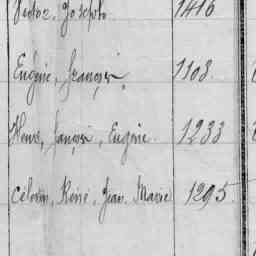 Victor, Joseph 1416
Eugène, François, 1108.
Henri, François, Eugène. 1233
Célestin, René, Jean, Marie 1295.